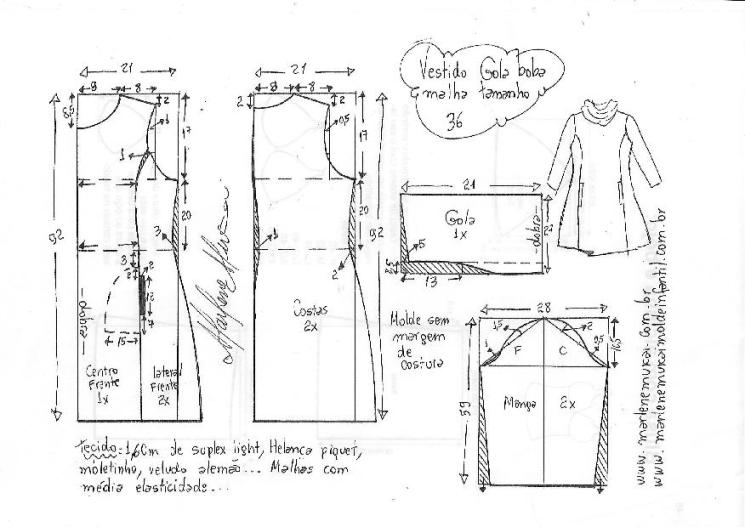 Vestido Gola boba
malha tamanho
36
21
8
8
2
8,5
1
17
1
92
20
3
3
2
2
12
7
15
dobra
Centro
Frente
1x
lateral
Frente
2x
21
8
8
2
2
9,5
17
20
92
1
2
Costas
2x
21
Gola
1x
dobra
21
5
2,5
13
Molde sem
margem
de
costura
28
1,5
2
1
9,5
16,5
F
C
59
Manga
2x
tecido: 1,60m de suplex light, Helanca piquet,
moletinho, veludo alemão... Malhas com
média elasticidade...
www.marlenemukai.com.br
www.marlenemukaimoldeinfantil.com.br